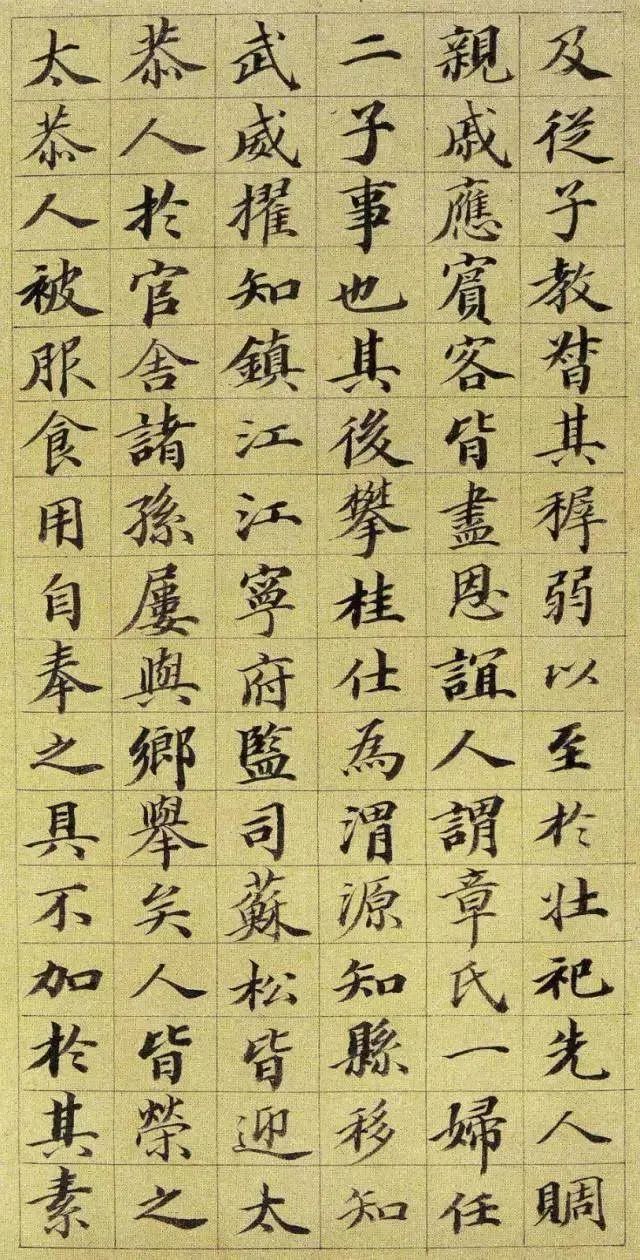 及從子教督其穉弱以至於壯祀先人賙
親戚應賓客皆盡恩誼人謂章氏一婦任
二子事也其後攀桂仕為渭源知縣移知
武威擢知鎮江江寧府監司蘇松皆迎太
恭人於官舍諸孫屢與鄉舉矣人皆榮之
太恭人被服食用自奉之具不加於其素